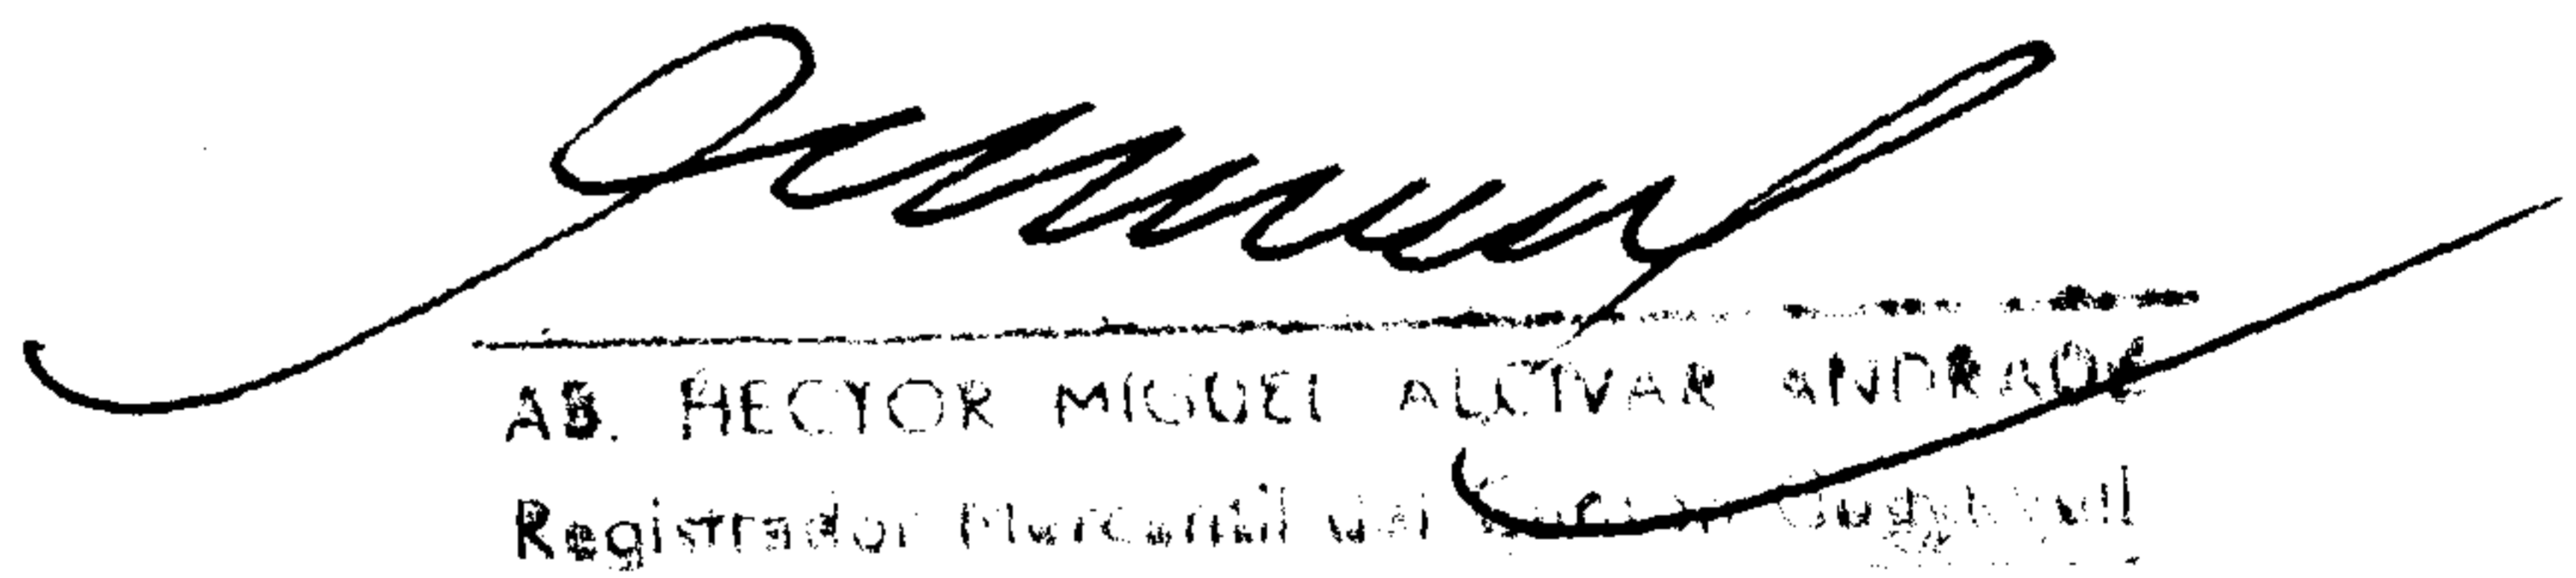 AB. HECTOR MIGUEL ALCIVAR ANDRADE
Registrador Mercantil del Cantón Guayaquil